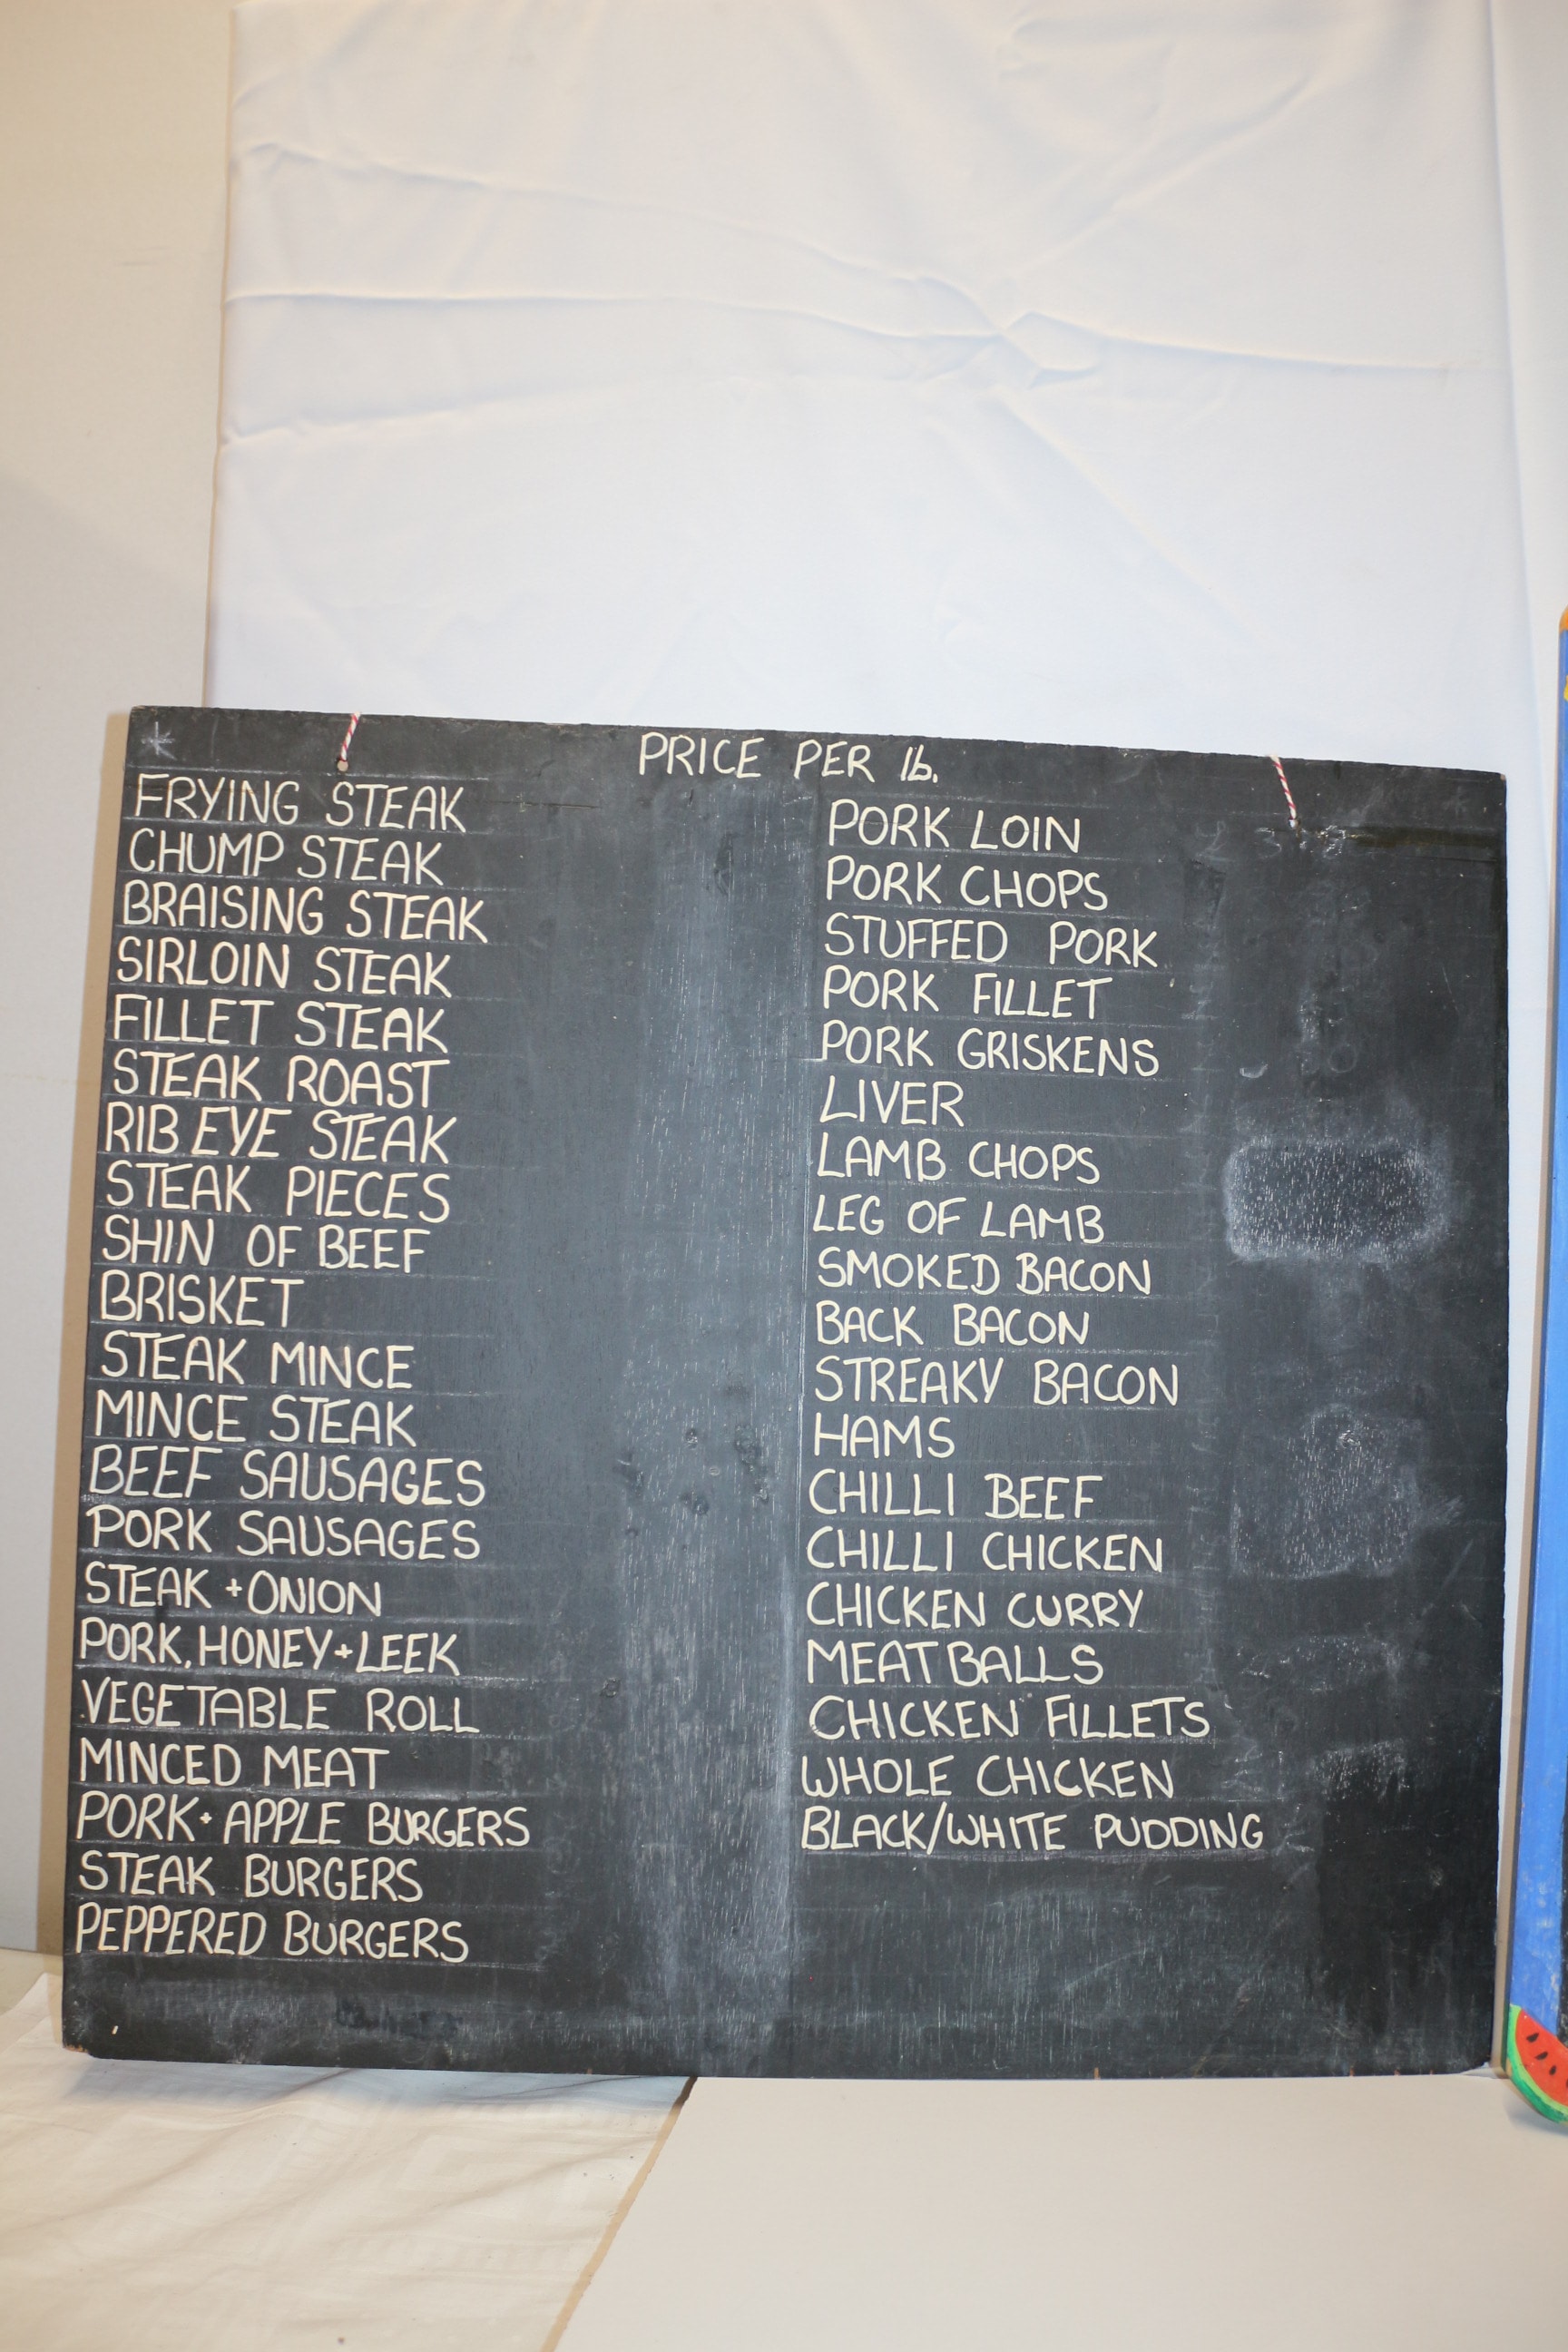 PRICE PER lb.
FRYING STEAK
CHUMP STEAK
BRAISING STEAK
SIRLOIN STEAK
FILLET STEAK
STEAK ROAST
RIB EYE STEAK
STEAK PIECES
SHIN OF BEEF
BRISKET
STEAK MINCE
MINCE STEAK
BEEF SAUSAGES
PORK SAUSAGES
STEAK + ONION
PORK, HONEY + LEEK
VEGETABLE ROLL
MINCED MEAT
PORK + APPLE BURGERS
STEAK BURGERS
PEPPERED BURGERS
PORK LOIN
PORK CHOPS
STUFFED PORK
PORK FILLET
PORK GRISKENS
LIVER
LAMB CHOPS
LEG OF LAMB
SMOKED BACON
BACK BACON
STREAKY BACON
HAMS
CHILLI BEEF
CHILLI CHICKEN
CHICKEN CURRY
MEATBALLS
CHICKEN FILLETS
WHOLE CHICKEN
BLACK/WHITE PUDDING